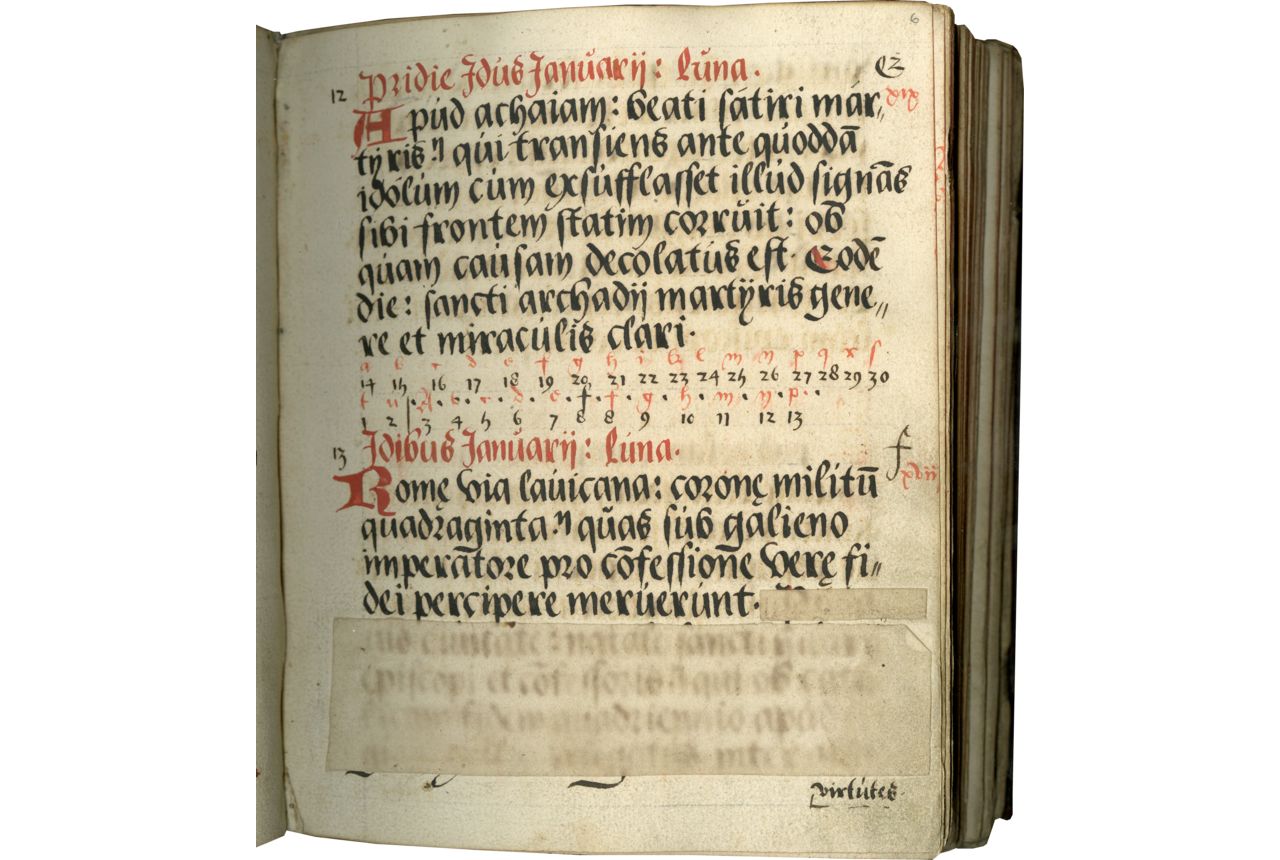 6
Pridie Jdus Januarij: Luna.
12
e2
xix
Apud achaiam: beati satiri mar„
tyris: qui transiens ante quoddā
idolum cum exsufflasset illud signās
sibi frontem statim corruit: ob
quam causam decolatus est. Eodē
die: sancti archadij martyris gene„
re et miraculis clari.
a b c d e f g h i k l m n p q r s
14 15 16 17 18 19 20 21 22 23 24 25 26 27 28 29 30
t u A b c d e f f g h m n p
1 2 3 4 5 6 7 8 8 9 10 11 12 13
13
Jdibus Januarij: Luna.
f
xvii
Romę via lauicana: coronę militū
quadraginta: quas sub galieno
imperātore pro cōfessiōne verę fi„
dei percipere meruerunt.
tus ciuitate: natale sancti
episcopi et cōfessoris: qui ob
virtutes.